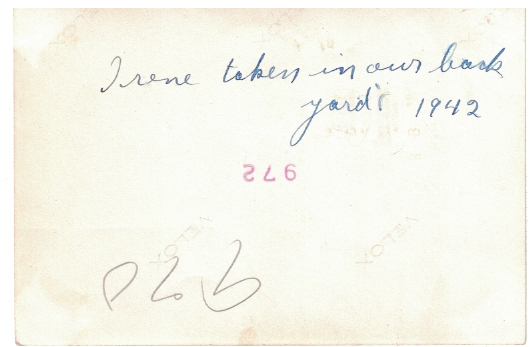 Irene taken in our back
yard 1942
972
VELOX
VELOX